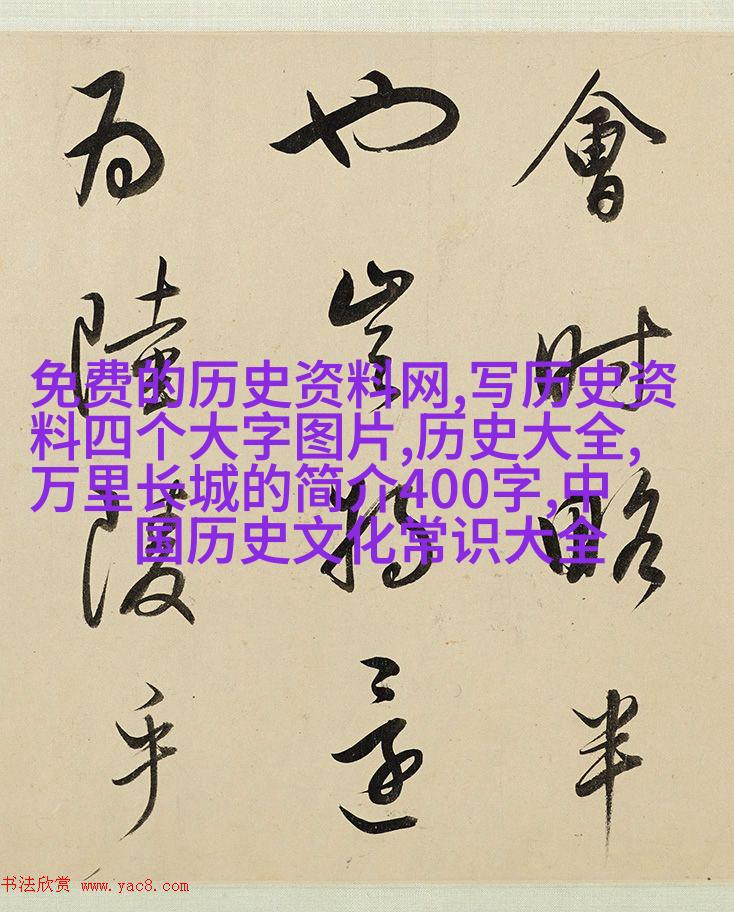 會時略半
也豈將還
為陸陵乎
免费的历史资料网,写历史资
料四个大字图片,历史大全,
万里长城的简介400字,中
国历史文化常识大全
书法欣赏 www.yac8.com